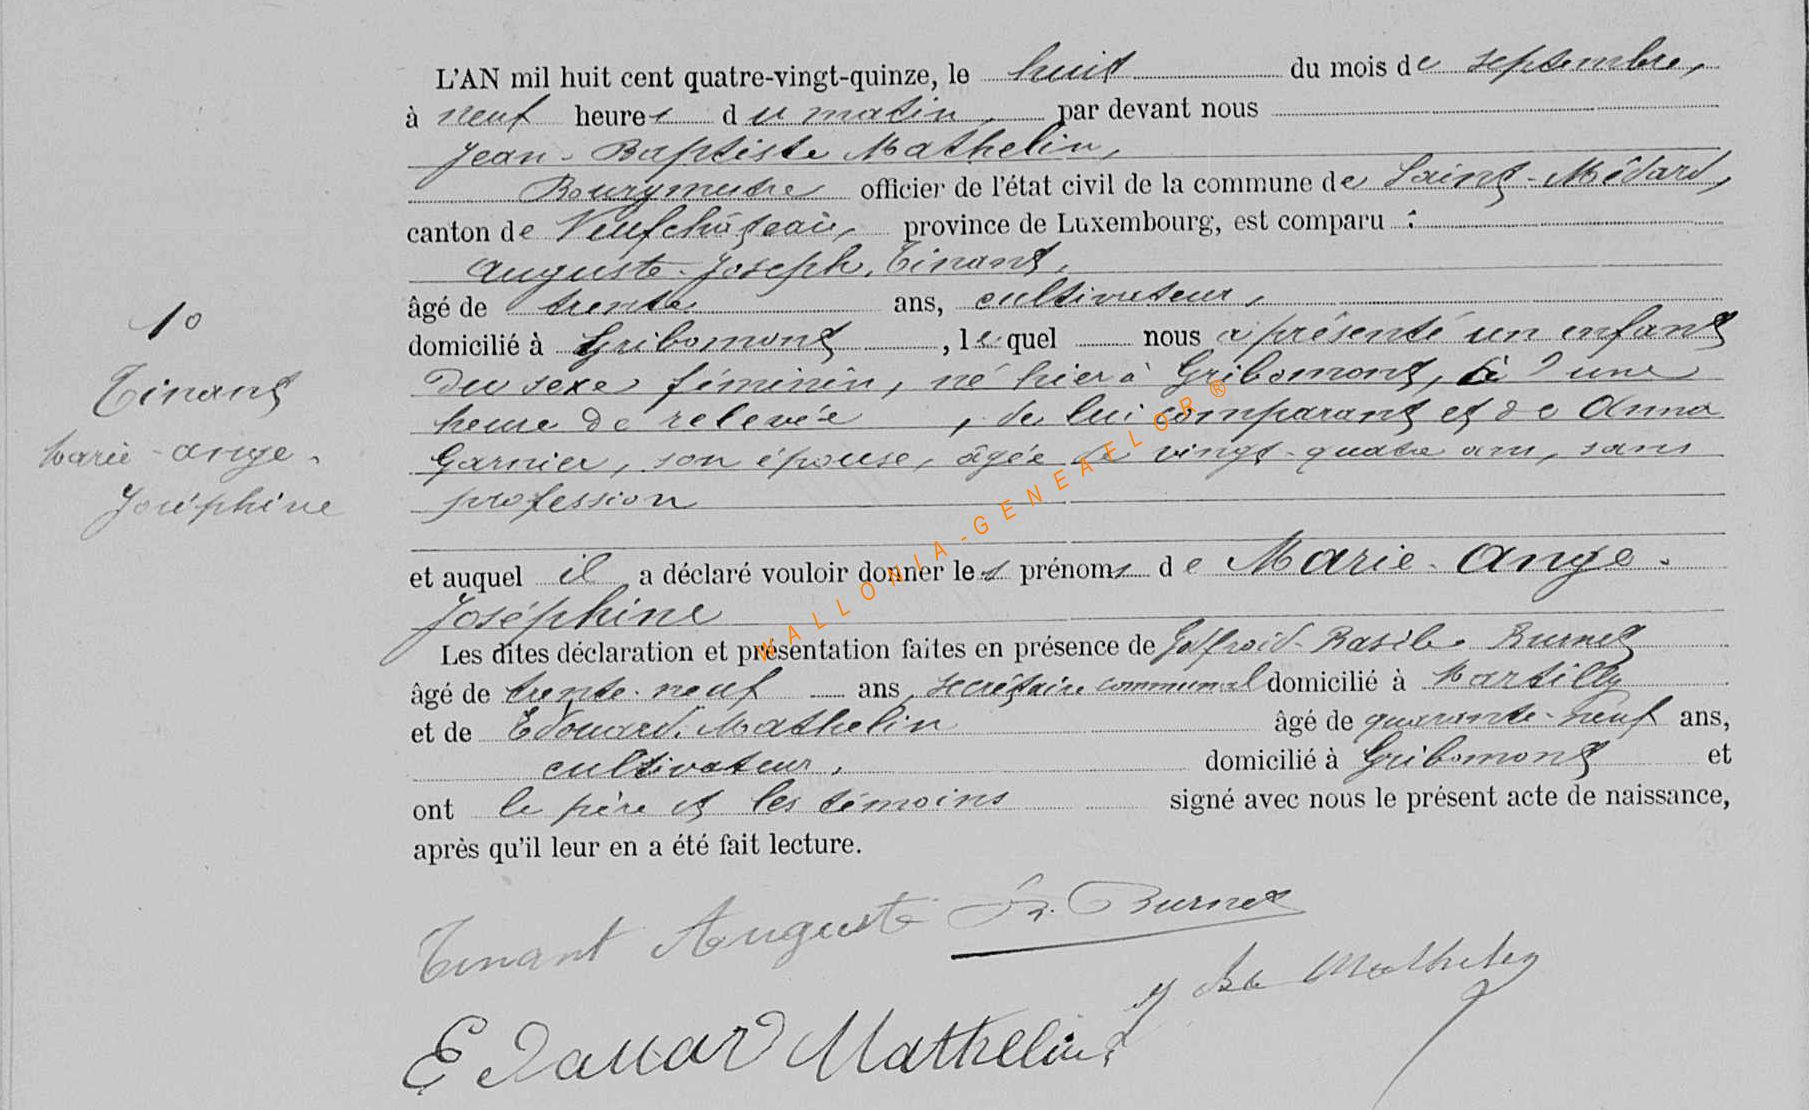 L'AN mil huit cent quatre-vingt-quinze, le huit du mois de septembre,
à neuf heures du matin, par devant nous
Jean-Baptiste Mathelin,
Bourgmestre officier de l'état civil de la commune de Saint-Médard,
canton de Neufchâteau, province de Luxembourg, est comparu :
Auguste-Joseph, Tinant,
âgé de trente ans, cultivateur,
domicilié à Gribomont, lequel nous a présenté un enfant
du sexe féminin, né hier à Gribomont, à une
heure de relevée, de lui comparant et de Anna
Garnier, son épouse, âgée de vingt-quatre ans, sans
profession
et auquel il a déclaré vouloir donner les prénoms de Marie-Ange-
Joséphine
Les dites déclaration et présentation faites en présence de Goffroid-Basile Burnet
âgé de trente-neuf ans, secrétaire communal domicilié à Martilly
et de Edouard Mathelin âgé de quarante-neuf ans,
cultivateur, domicilié à Gribomont et
ont le père et les témoins signé avec nous le présent acte de naissance,
après qu'il leur en a été fait lecture.
10
Tinant
Marie-Ange-
Joséphine
Tinant Auguste Burnet
J Bte Mathelin
Edouard Mathelin
WALLONIA-GENEAFLOR®